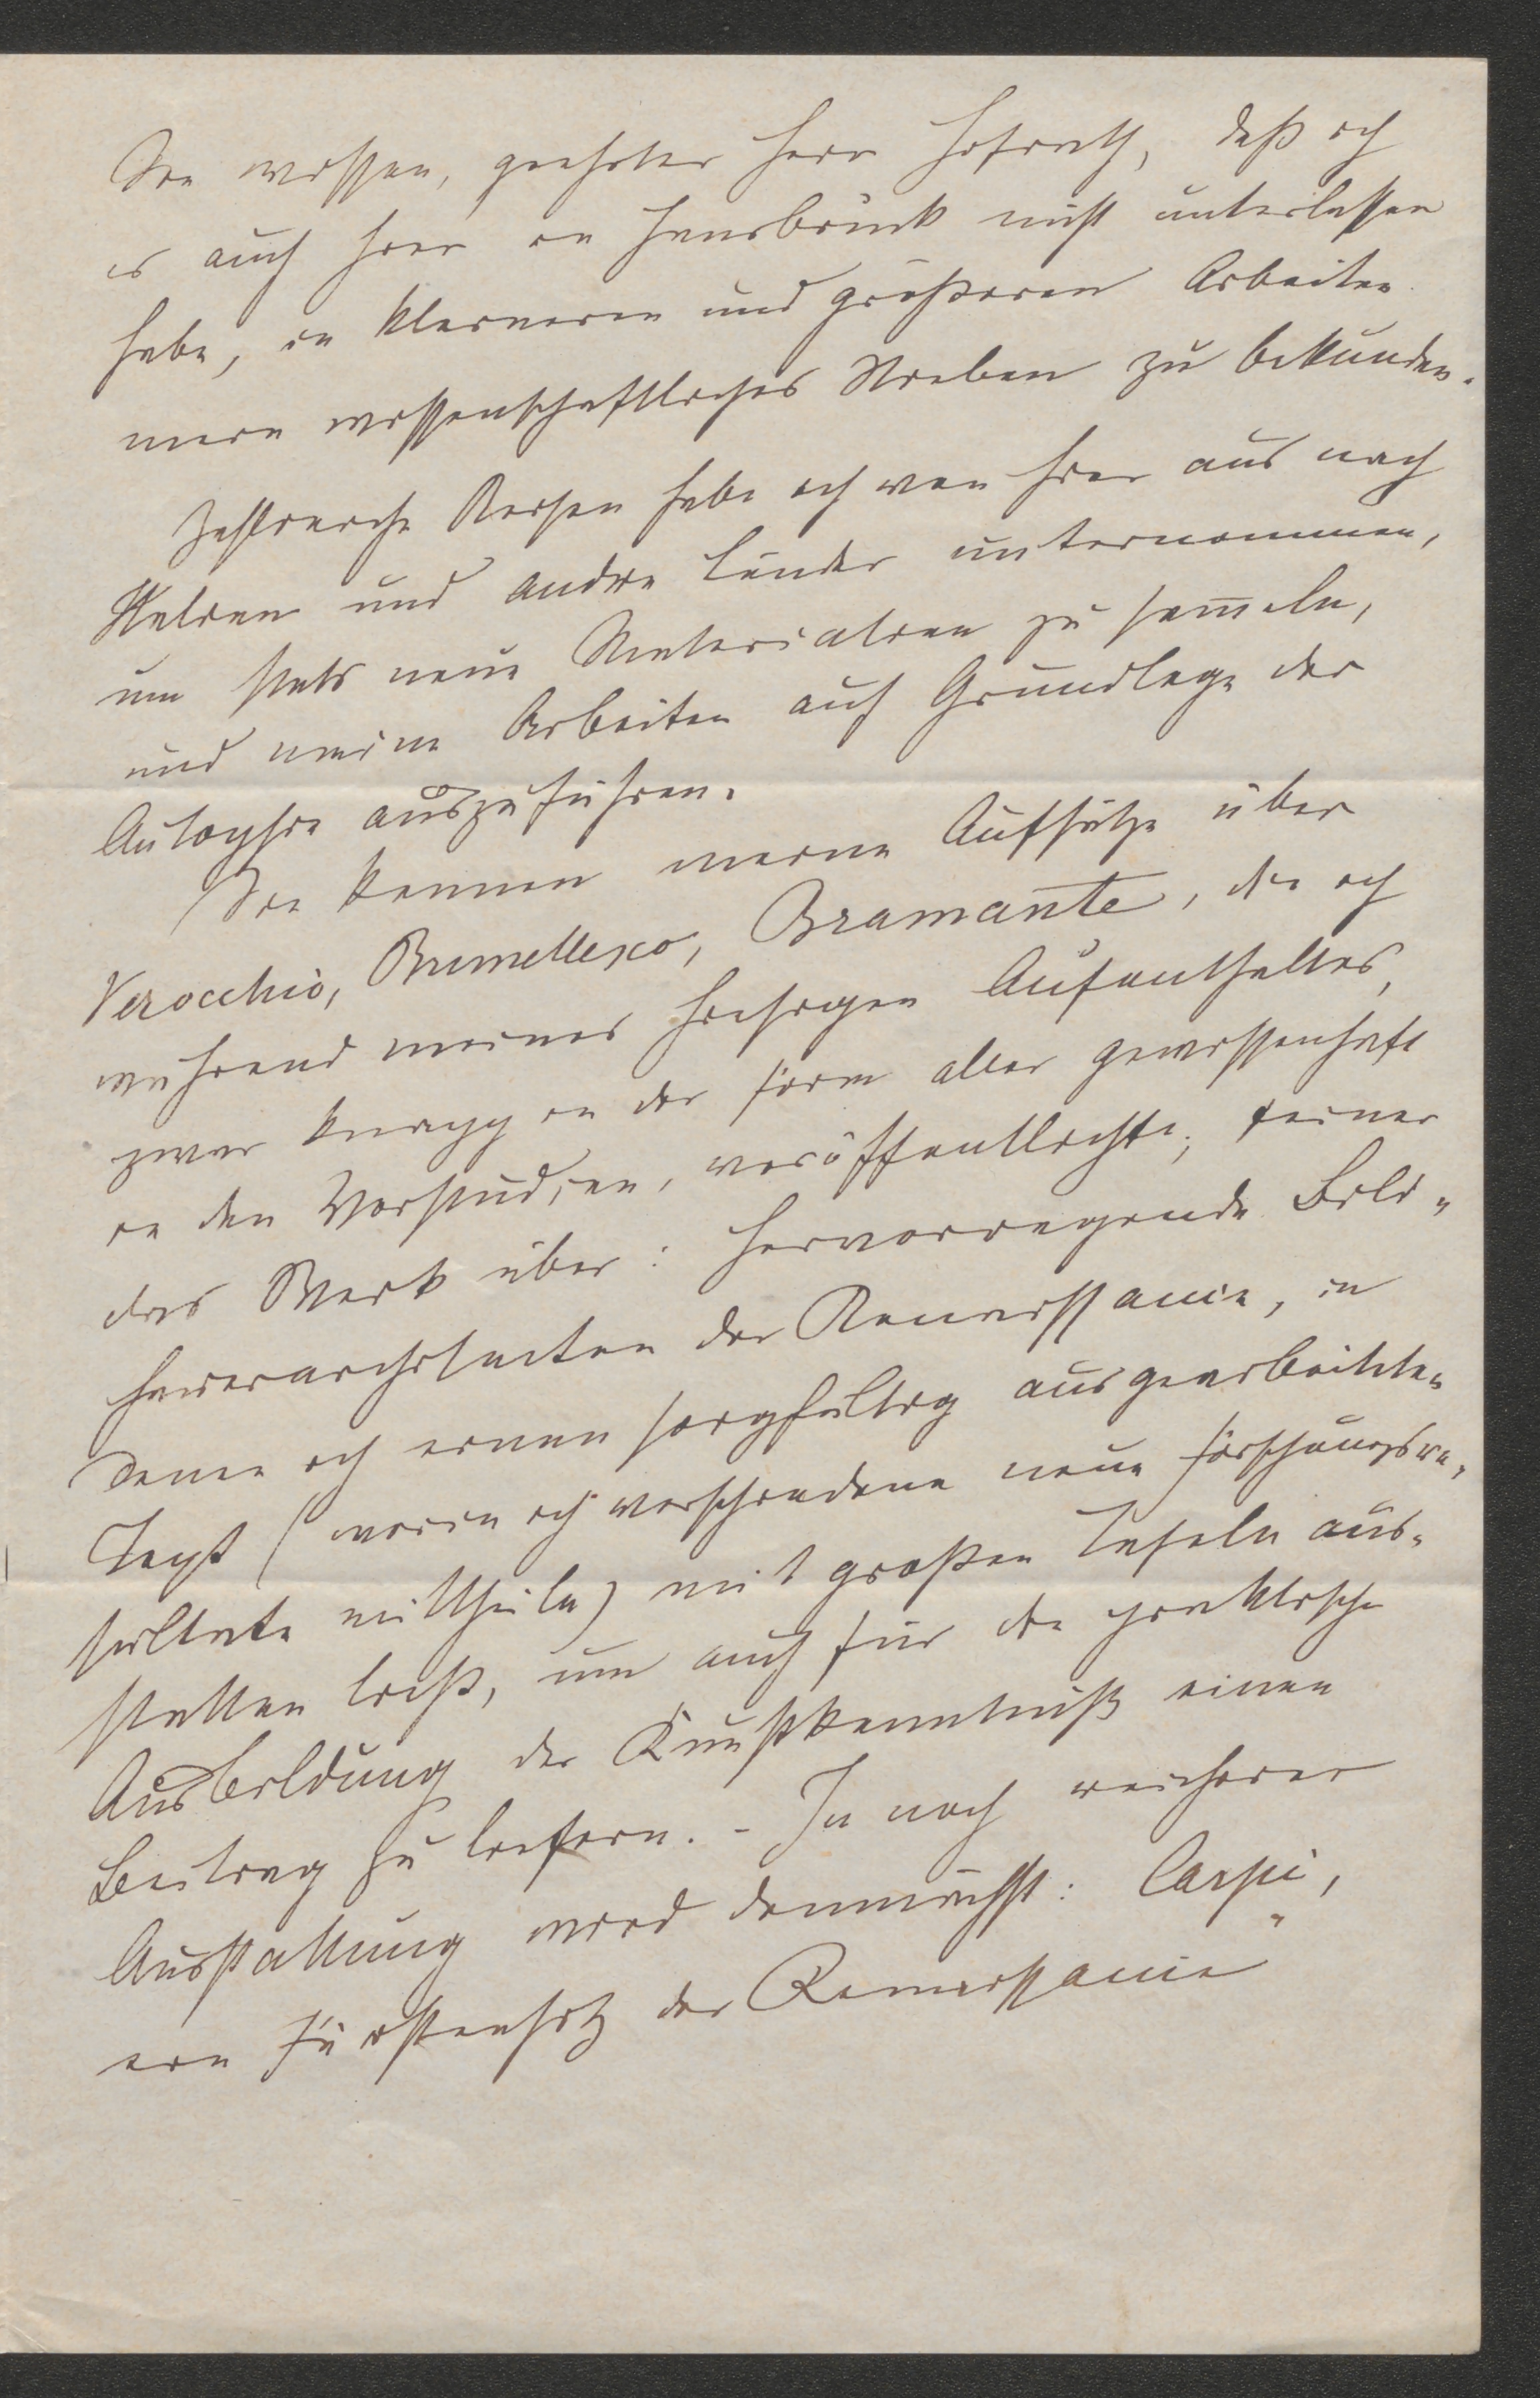 Sie wissen, geehrter Herr Hofrath, daß ich
es auch hier in Innsbruck nicht unterlassen
habe, in kleineren und größeren Arbeiten
mein wissenschaftliches Streben zu bekunden.
Zahlreiche Reisen habe ich von hier aus nach
Italien und andre Länder unternommen,
um stets neue Materialien zu sam̅eln,
und meine Arbeiten auf Grundlage der
Autopsie auszuführen.
Sie kennen meine Aufsätze über
Verocchio, Brunellesco, Bramante, die ich
während meines hiesigen Aufenthaltes,
zwar knapp in der Form aber gewissenhaft
in den Vorstudien, veröffentlichte; ferner
das Werk über: Hervorragende Bild-
hauerarchitecten der Renaissance, in
denen ich einen sorgfältig ausgearbeiteten
Text (worin ich verschiedene neue Forschungsre-
sultate mittheile) mit großen Tafeln aus-
statten ließ, um auch für die praktische
Ausbildung der Kunstkenntniß einen
Beitrag zu liefern. - In noch reicherer
Ausstattung wird demnächst: Carpi,
ein Fürstensitz der Renaissance"